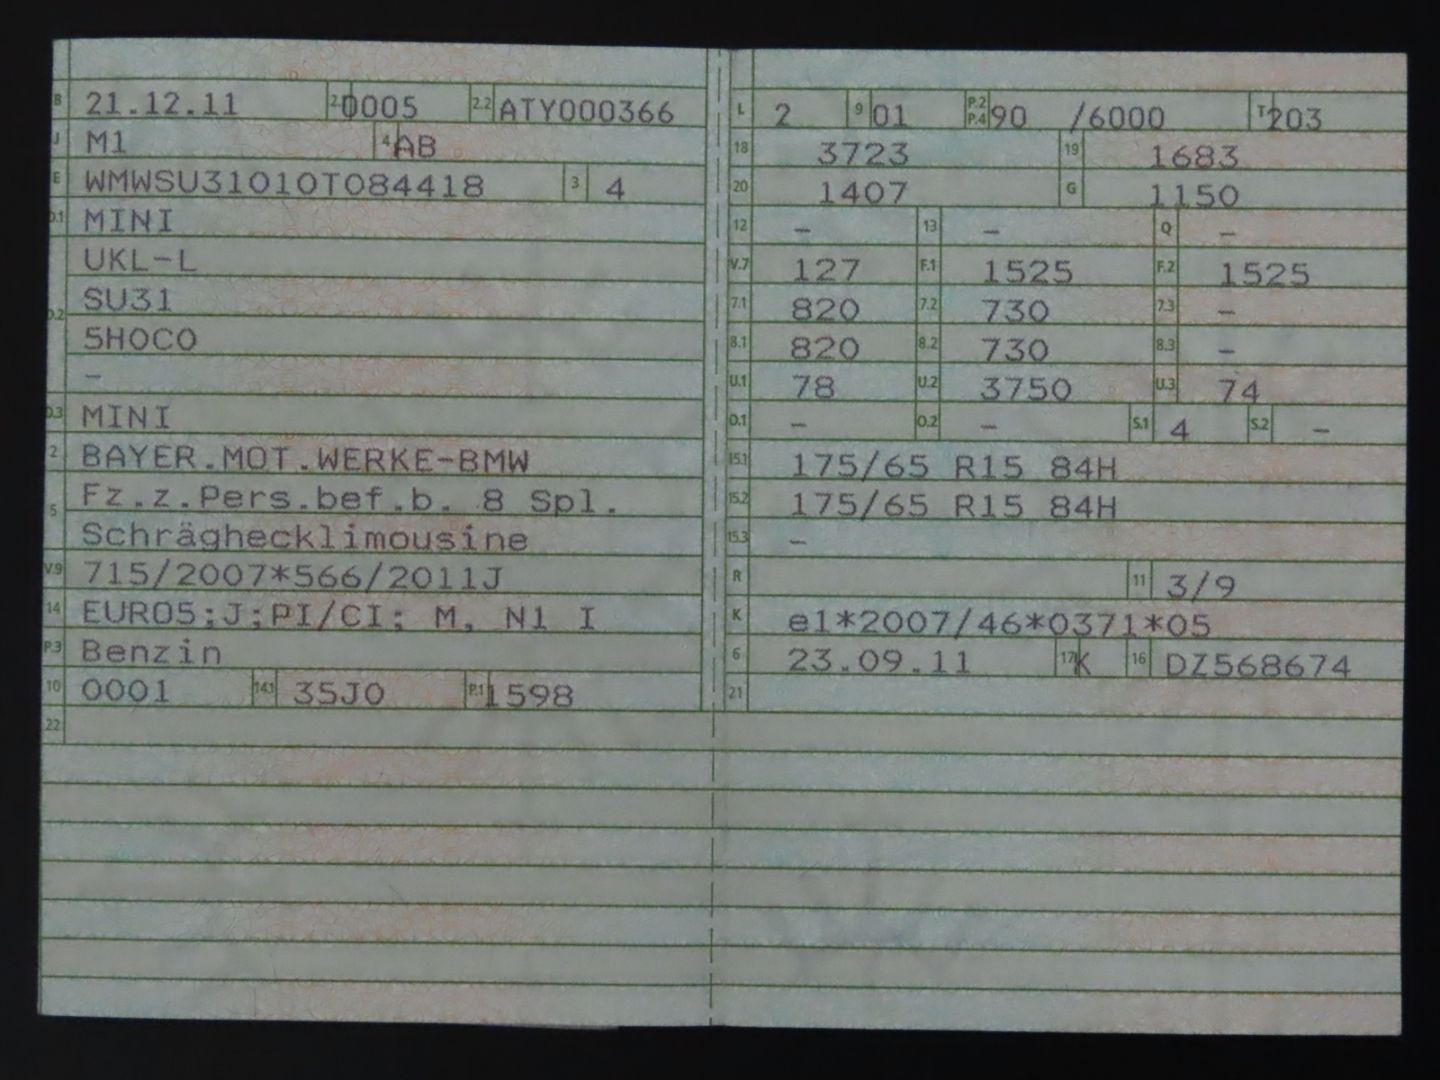 B 21.12.11 2.1 0005 2.2 ATY000366
J M1 4 AB
E WMWSU31010T084418 3 4
D.1 MINI
UKL-L
D.2 SU31
5HOCO
–
D.3 MINI
2 BAYER.MOT.WERKE-BMW
5 Fz.z.Pers.bef.b. 8 Spl.
Schräghecklimousine
V.9 715/2007*566/2011J
14 EURO5;J;PI/CI; M, N1 I
P.3 Benzin
10 0001 14.1 35J0 P.1 1598
22
L 2 9 01 P.2 P.4 90 /6000 T 203
18 3723 19 1683
20 1407 G 1150
12 – 13 – Q –
V.7 127 F.1 1525 F.2 1525
7.1 820 7.2 730 7.3 –
8.1 820 8.2 730 8.3 –
U.1 78 U.2 3750 U.3 74
O.1 – O.2 – S.1 4 S.2 –
15.1 175/65 R15 84H
15.2 175/65 R15 84H
15.3 –
R 11 3/9
K e1*2007/46*0371*05
6 23.09.11 17 K 16 DZ568674
21